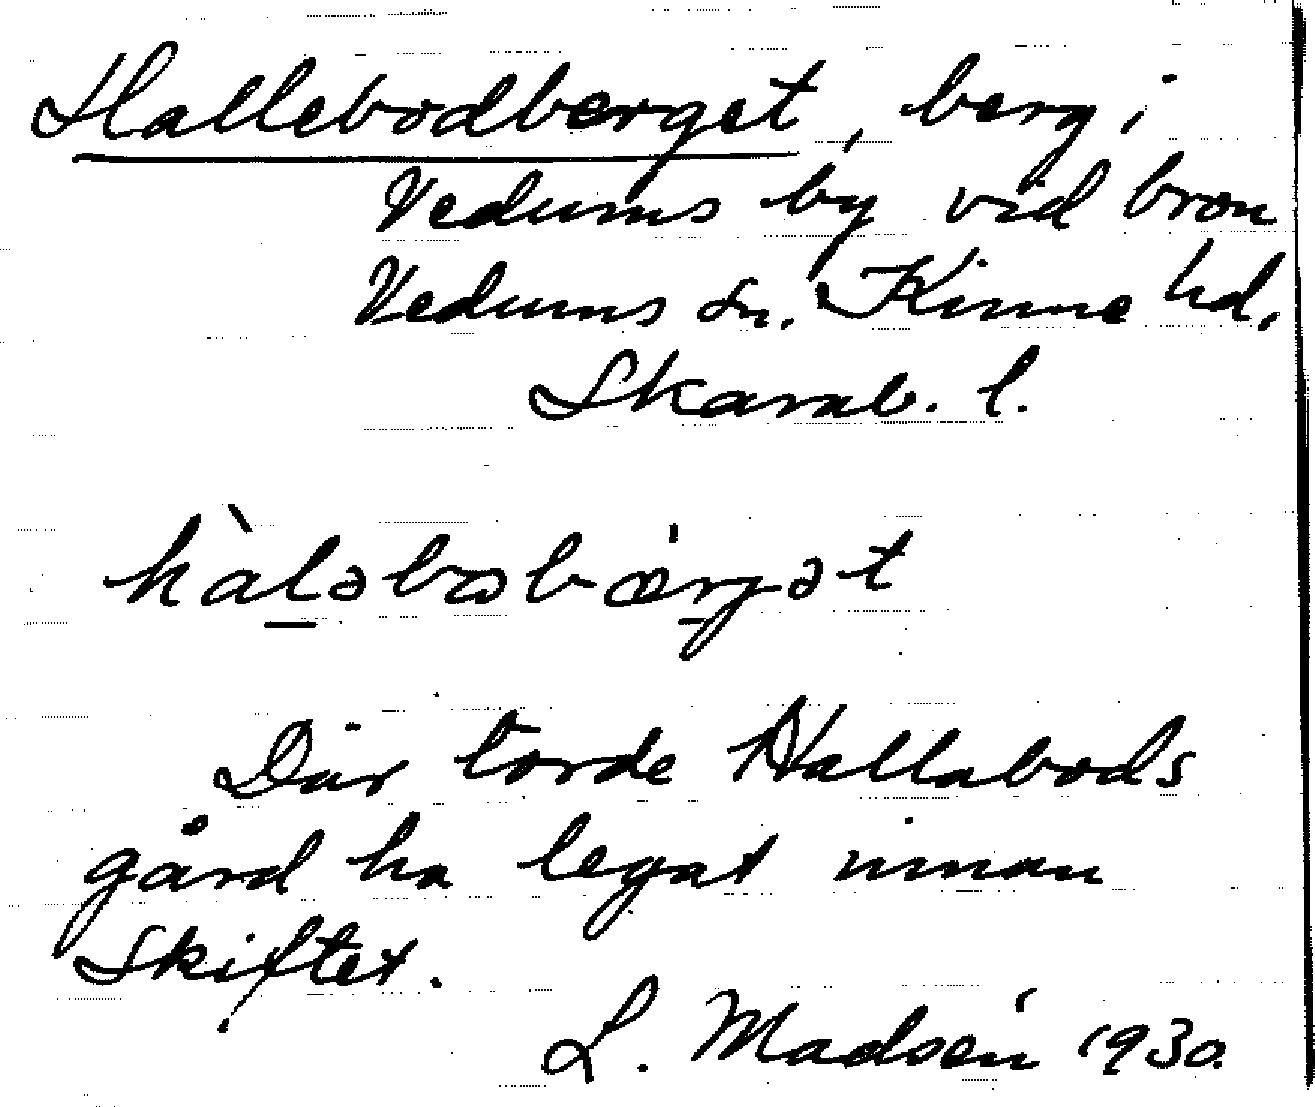 Hallebodberget, berg i
Vedums by vid bron
Vedums sn. Kinne hd.
Skarab. l.
hàləbɷbærgət
Där torde Hallabods
gård ha legat innan
skiftet.
L. Madsén 1930.